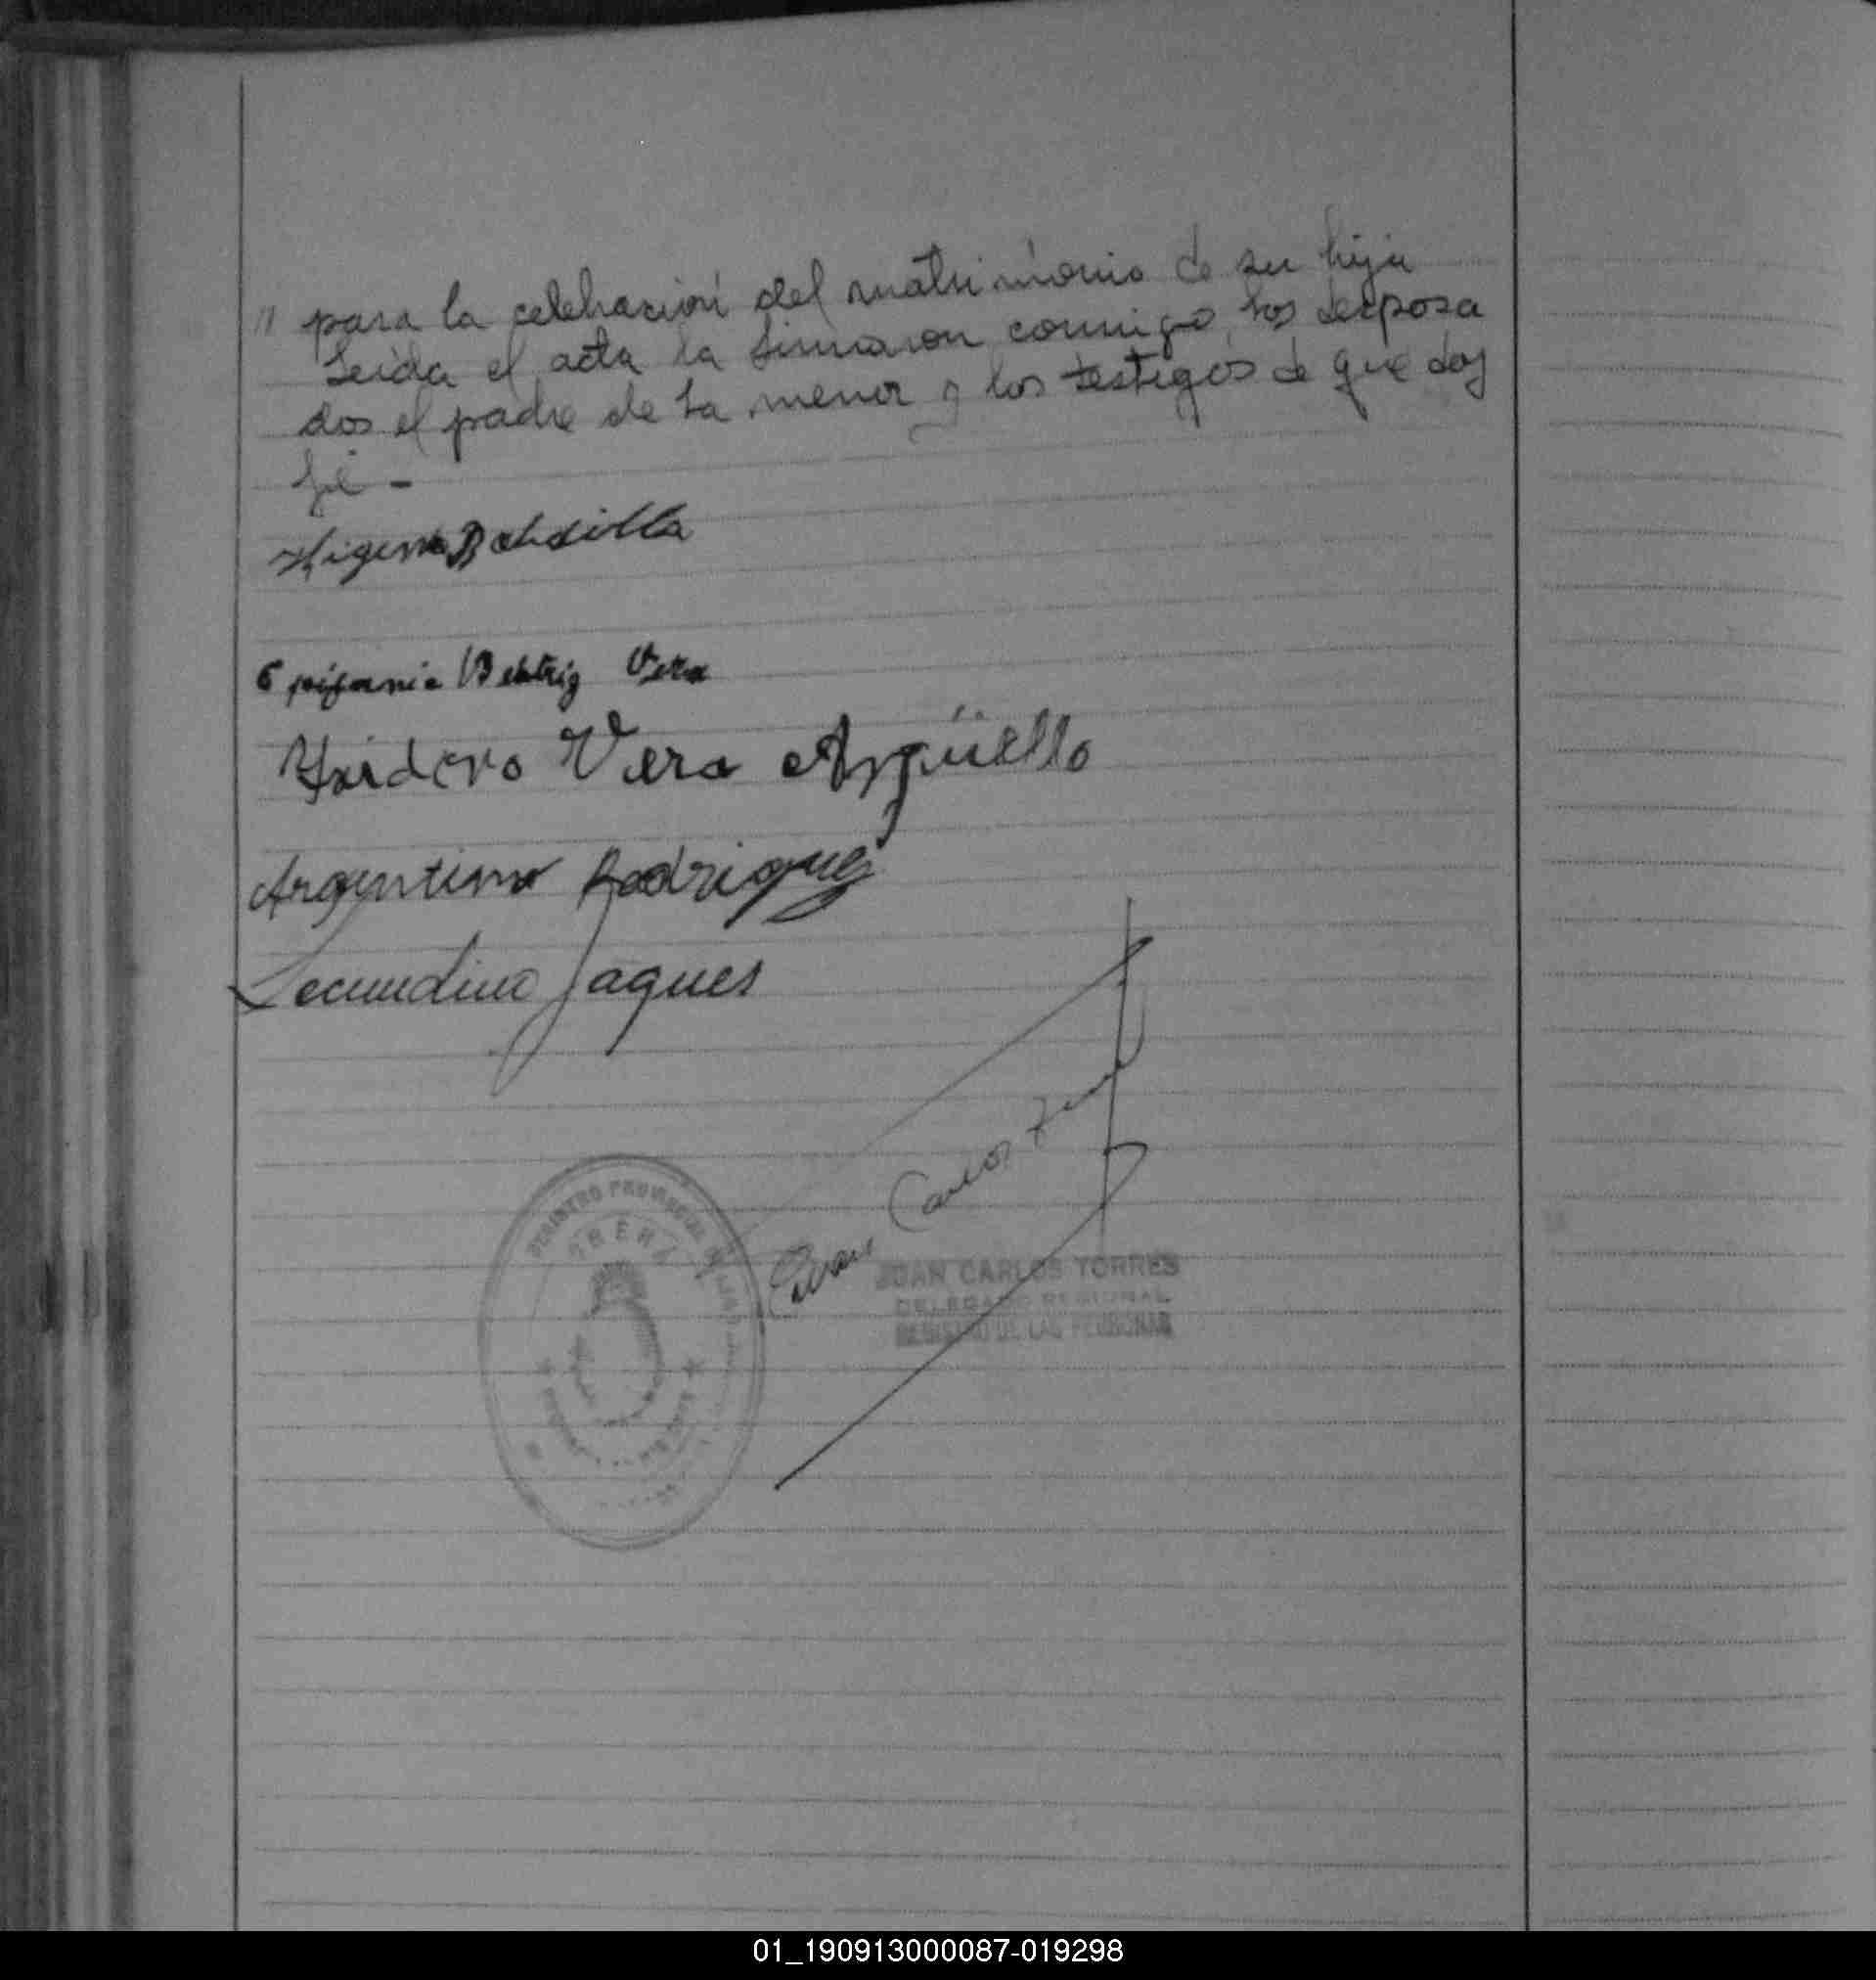 " para la celebración del matrimonio de su hija
Leida el acta la firmaron conmigo los desposa
dos el padre de la menor y los testigos de que doy
fé -
Epifania Beatriz Vera
Ysidoro Vera Argüello
Argentino Rodriguez
Secundino Jaques
Juan Carlos
REGISTRO PROVINCIAL
JUAN CARLOS TORRES
DELEGADO REGIONAL
REGISTRO DE LAS PERSONAS
01_190913000087-019298